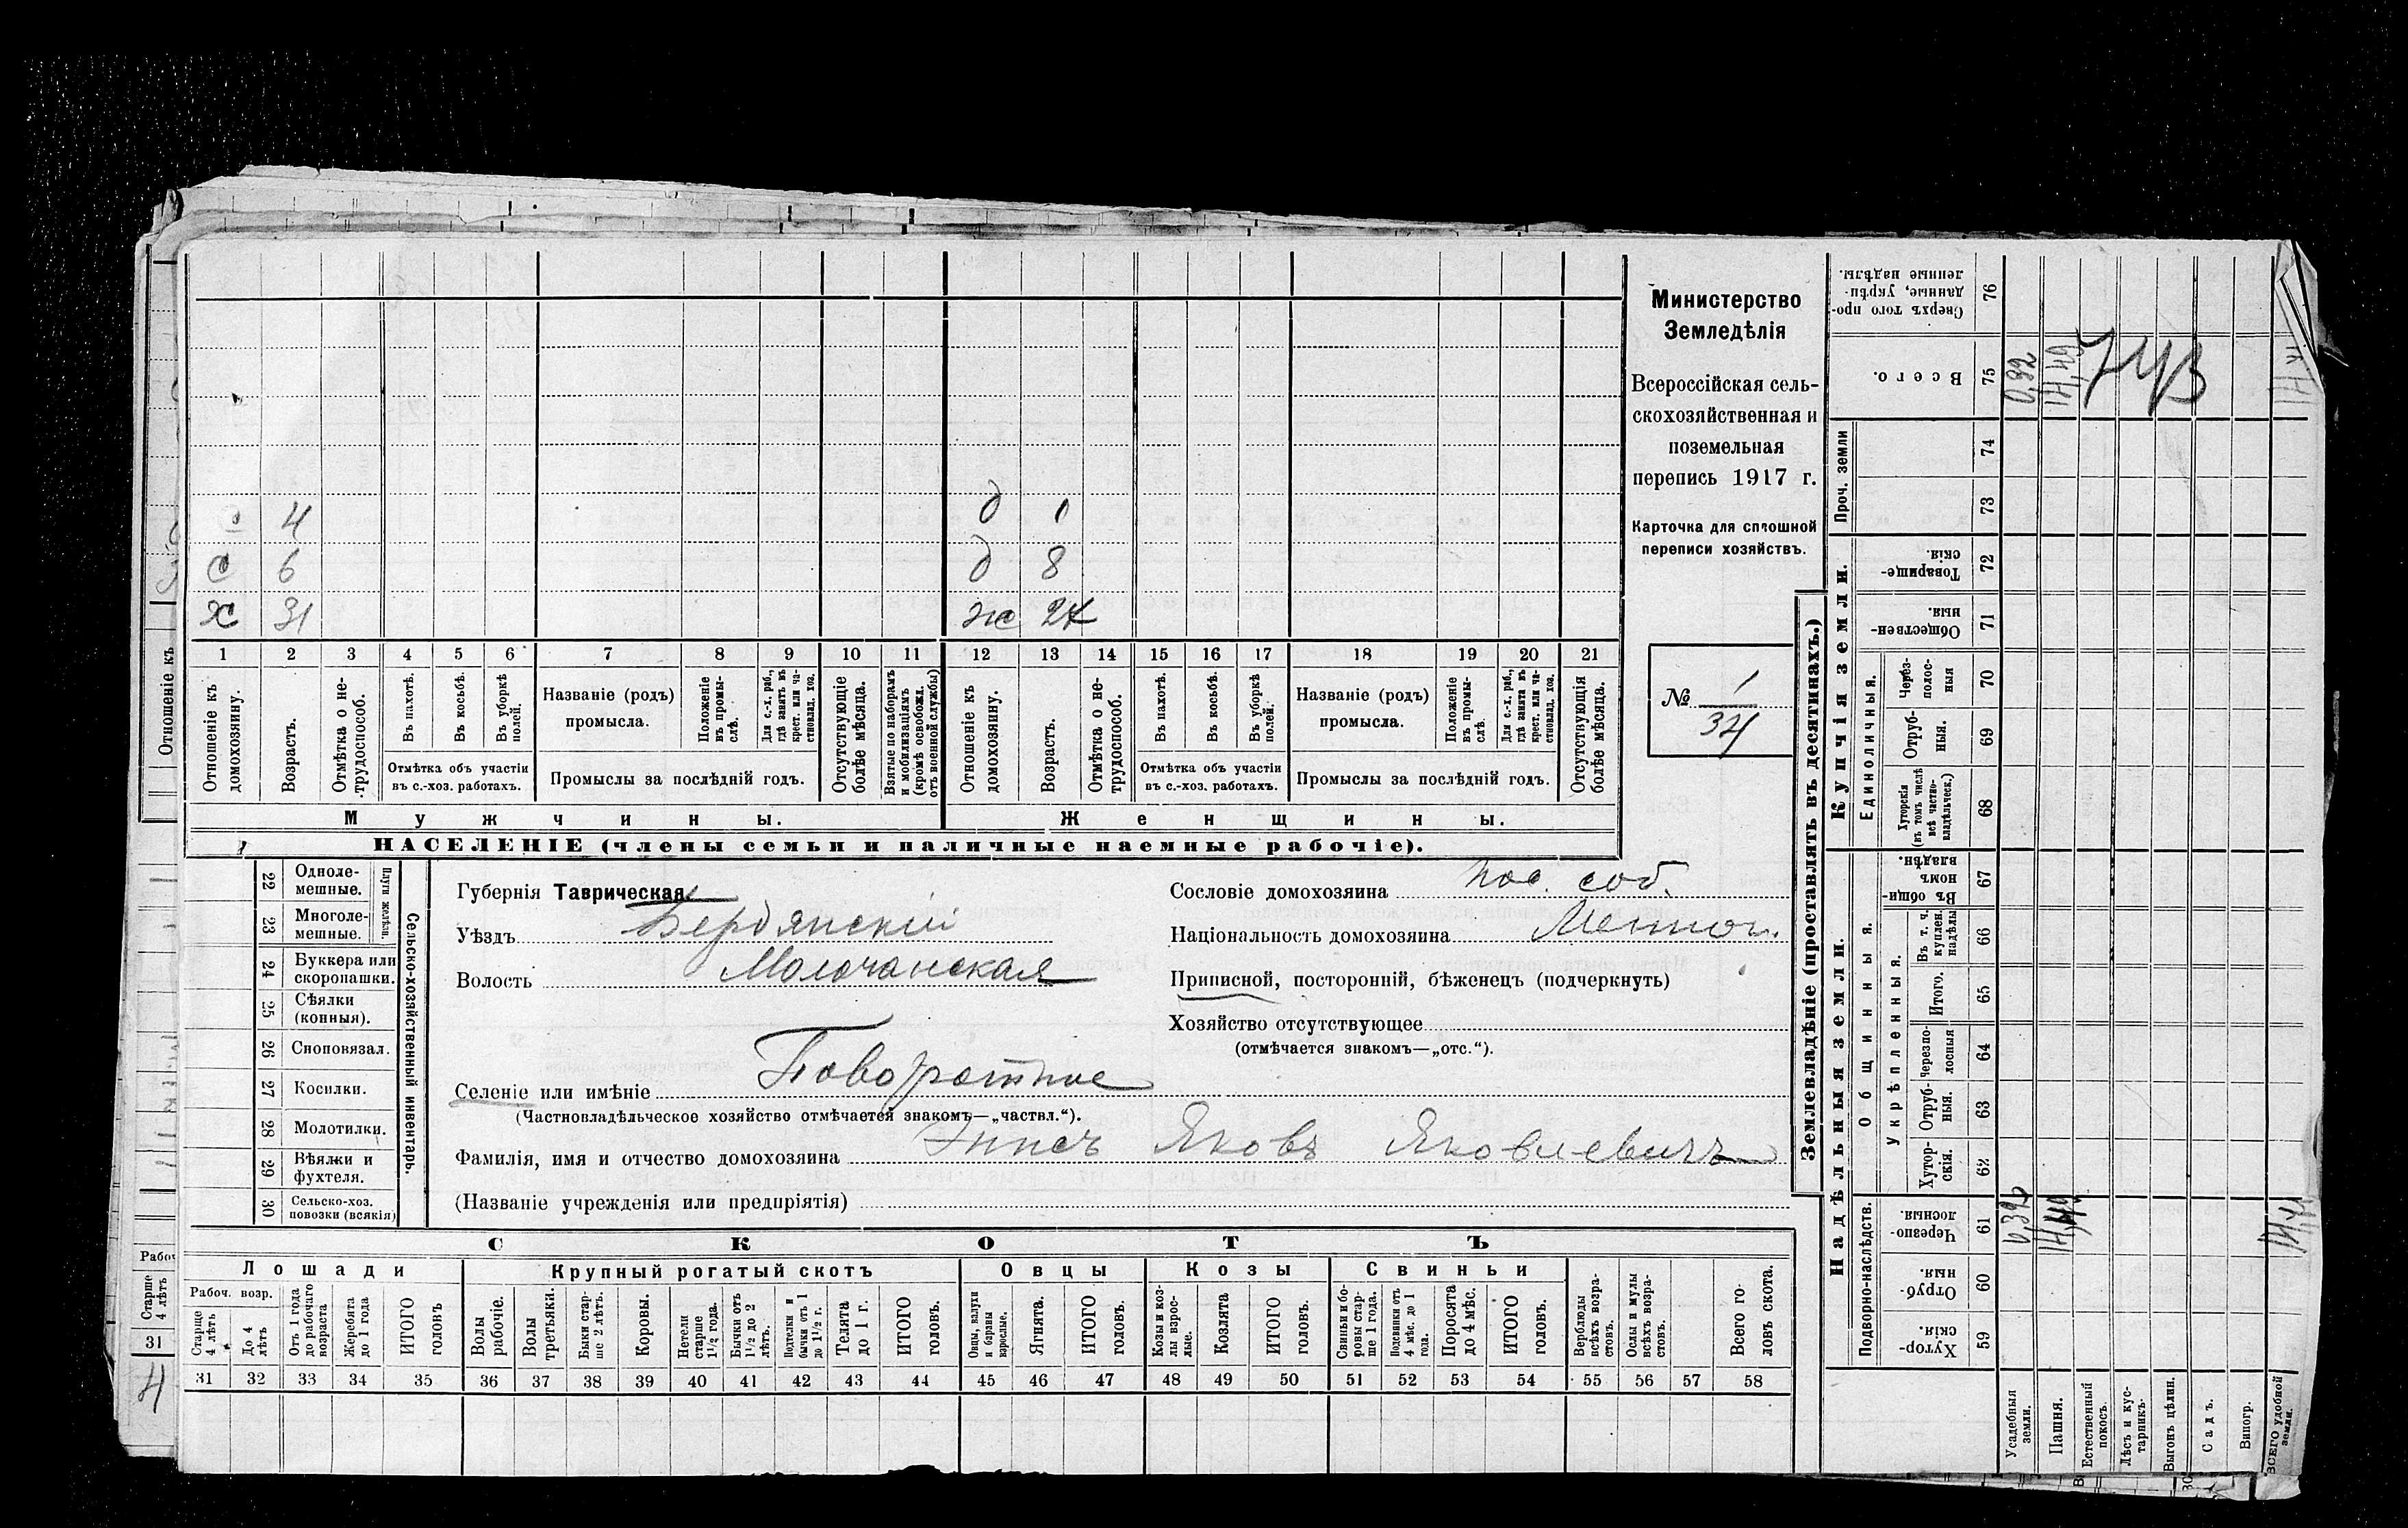 Министерство
Земледѣлія
Всероссійская сель-
скохозяйственная и
поземельная
перепись 1917 г.
Карточка для сплошной
переписи хозяйствъ.
№ 1
34
4 д 1
с 6 д 8
х 31 ж 24
1 2 3 4 5 6 7 8 9 10 11 12 13 14 15 16 17 18 19 20 21
Отношеніе къ домохозяину.
Возрастъ.
Отмѣтка о не-трудоспособ.
Въ пахотѣ.
Въ косьбѣ.
Въ уборкѣ полей.
Отмѣтка объ участіи
въ с.-хоз. работахъ.
Названіе (родъ)
промысла.
Положеніе въ промы-слѣ.
Для с.-х. раб., гдѣ занятъ въ крест. или ча-стновлад. хоз.
Промыслы за послѣдній годъ.
Отсутствующіе болѣе мѣсяца.
Взятые по наборамъ и мобилизаціямъ (кромѣ освобожд. отъ военной службы)
Отношеніе къ домохозяину.
Возрастъ.
Отмѣтка о не-трудоспособ.
Въ пахотѣ.
Въ косьбѣ.
Въ уборкѣ полей.
Отмѣтка объ участіи
въ с.-хоз. работахъ.
Названіе (родъ)
промысла.
Положеніе въ промы-слѣ.
Для с.-х. раб., гдѣ занята въ крест. или ча-стновлад. хоз.
Промыслы за послѣдній годъ.
Отсутствующія болѣе мѣсяца.
Мужчины. Женщины.
НАСЕЛЕНІЕ (члены семьи и наличные наемные рабочіе).
22 Одноле-мешные.
23 Многоле-мешные.
Плуги желѣзн.
24 Буккера или скоропашки.
25 Сѣялки (конныя).
26 Сноповязал.
27 Косилки.
28 Молотилки.
29 Вѣялки и фухтеля.
30 Сельско-хоз. повозки (всякія)
Сельско-хозяйственный инвентарь.
Губернія Таврическая.
Уѣздъ Бердянскій
Волость Молочанская
Селеніе или имѣніе Поворотное
(Частновладѣльческое хозяйство отмѣчается знакомъ—„частвл.“).
Фамилія, имя и отчество домохозяина Эппсъ Яковъ Яковлевичъ
(Названіе учрежденія или предпріятія)
Сословіе домохозяина пос. соб.
Національность домохозяина Меннон.
Приписной, посторонній, бѣженецъ (подчеркнуть)
Хозяйство отсутствующее
(отмѣчается знакомъ—„отс.“).
СКОТЪ
Лошади Крупный рогатый скотъ Овцы Козы Свиньи
Рабоч. возр.
Старше 4 лѣтъ
До 4 лѣтъ
Отъ 1 года до рабочаго возраста
Жеребята до 1 года
ИТОГО головъ
Волы рабочіе.
Волы третьяки.
Быки стар-ше 2 лѣтъ.
Коровы.
Нетели старше 1½ года.
Бычки отъ 1½ до 2 лѣтъ.
Подтелки и бычки отъ 1 до 1½ г.
Телята до 1 г.
ИТОГО головъ.
Овцы, валухи и бараны взрослые.
Ягнята.
ИТОГО головъ.
Козы и коз-лы взрос-лые.
Козлята
ИТОГО головъ.
Свиньи и бо-ровы стар-ше 1 года.
Подсвинки отъ 4 мѣс. до 1 года.
Поросята до 4 мѣс.
ИТОГО головъ.
Верблюды всѣхъ возра-стовъ.
Ослы и мулы всѣхъ возра-стовъ.
Всего го-ловъ скота.
31 32 33 34 35 36 37 38 39 40 41 42 43 44 45 46 47 48 49 50 51 52 53 54 55 56 57 58
Землевладѣніе (проставлять въ десятинахъ.)
Надѣльныя земли. Купчія земли. Проч. земли
Подворно-наслѣдств.
Общинныя.
Укрѣпленныя.
Единоличныя.
Хутор-скія. 59
Отруб-ныя. 60
Черезпо-лосныя. 61
Хутор-скія. 62
Отруб-ныя. 63
Черезпо-лосныя 64
Итого. 65
Въ т. ч. куплен. надѣлы 66
Въ общин-номъ владѣн. 67
Хуторскія (въ томъ числѣ всѣ частно-владѣльческ.) 68
Отруб-ныя. 69
Через-полос-ныя 70
Обществен-ныя. 71
Товарище-скія. 72
73
74
Всего. 75
Сверхъ того про-данные, укрѣп-ленные надѣлы. 76
Усадебныя земли.
Пашня. 14,49
Естественный покосъ.
Лѣсъ и кус-тарникъ.
Выгонъ цѣлин.
Садъ.
Виногр.
ВСЕГО удобной земли.
Отношеніе къ
Рабоч
Старше 4 лѣтъ
31
4